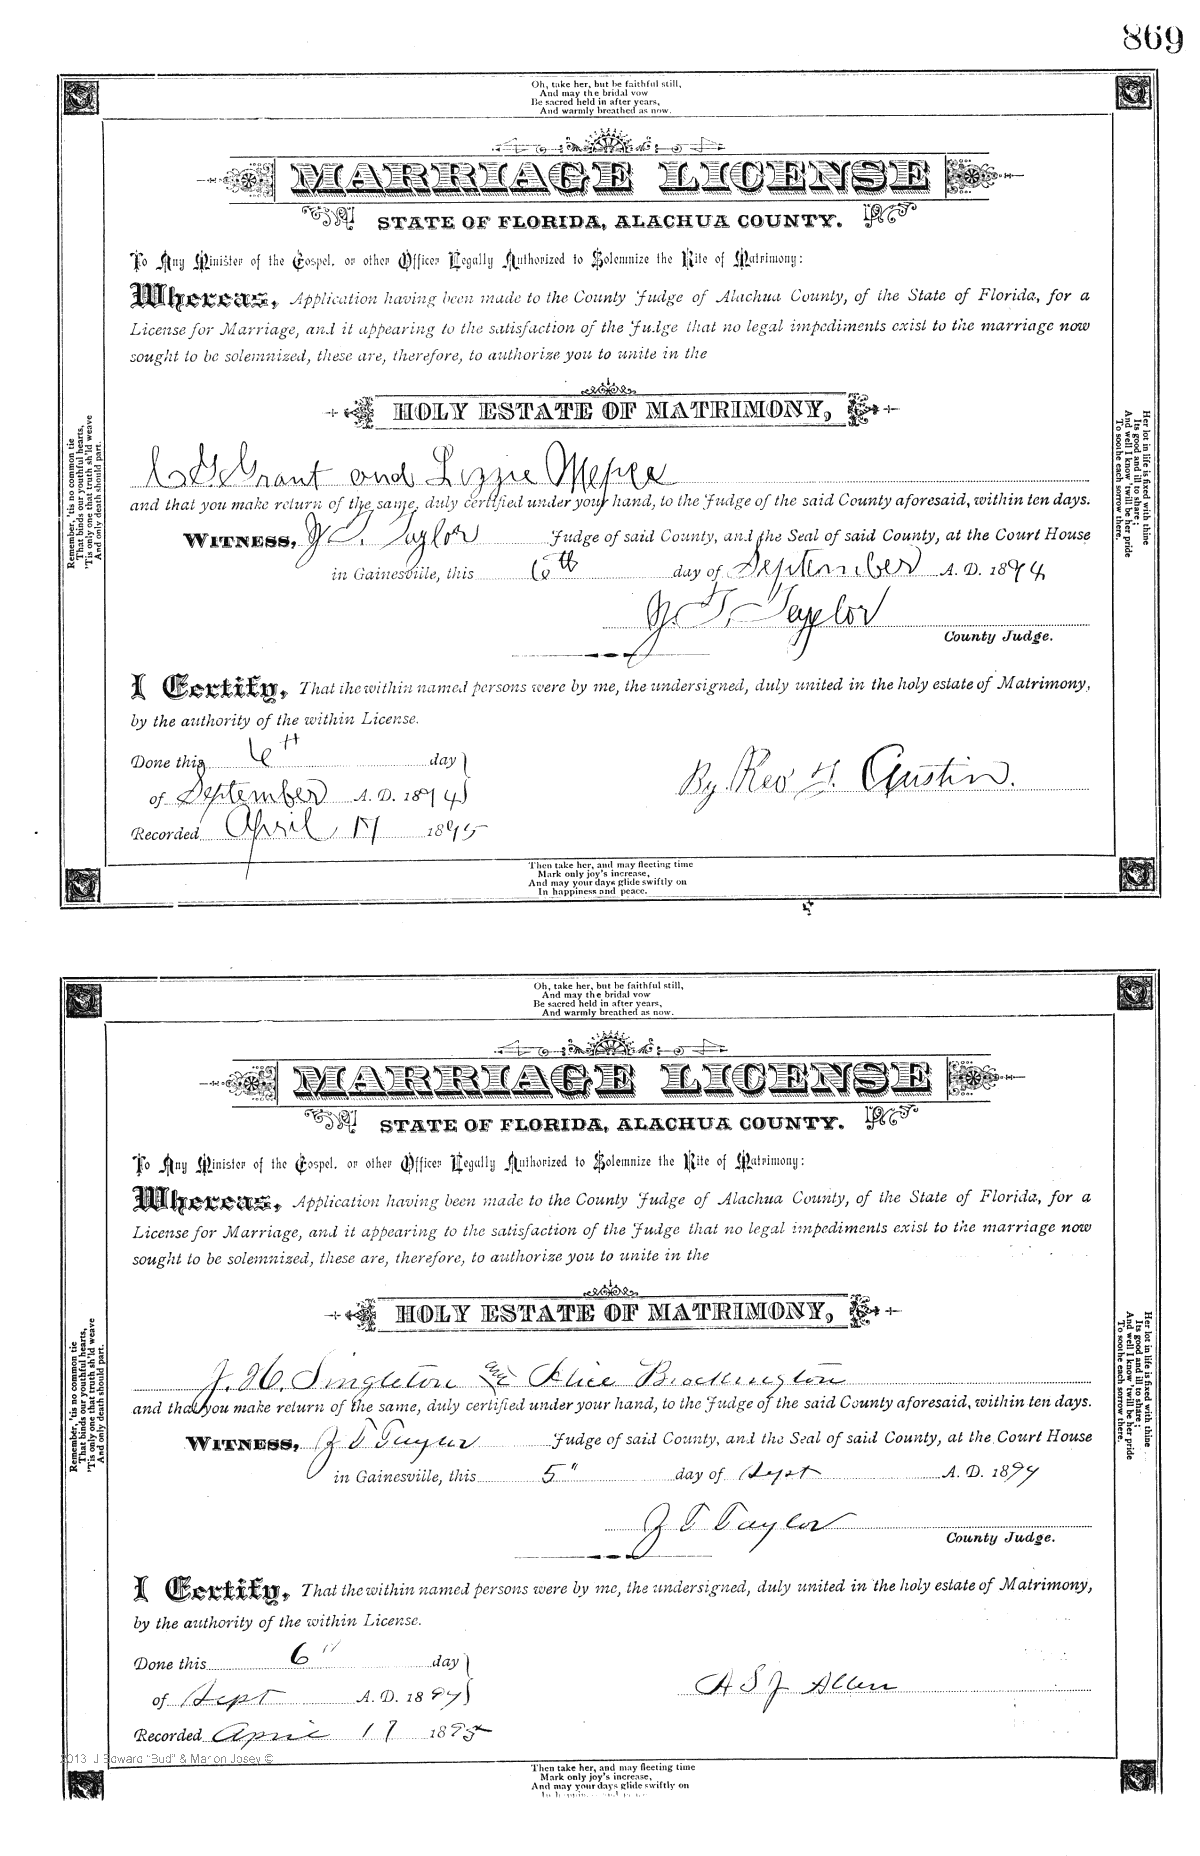 869
Oh, take her, but be faithful still,
And may the bridal vow
Be sacred held in after years,
And warmly breathed as now.
MARRIAGE LICENSE
STATE OF FLORIDA, ALACHUA COUNTY.
To Any Minister of the Gospel, or other Officer Legally Authorized to Solemnize the Rite of Matrimony:
Whereas, Application having been made to the County Judge of Alachua County, of the State of Florida, for a
License for Marriage, and it appearing to the satisfaction of the Judge that no legal impediments exist to the marriage now
sought to be solemnized, these are, therefore, to authorize you to unite in the
HOLY ESTATE OF MATRIMONY,
Grant and Lizzie
and that you make return of the same, duly certified under your hand, to the Judge of the said County aforesaid, within ten days.
WITNESS, Taylor Judge of said County, and the Seal of said County, at the Court House
in Gainesville, this 6th day of September A. D. 1894
Taylor
County Judge.
I Certify, That the within named persons were by me, the undersigned, duly united in the holy estate of Matrimony,
by the authority of the within License.
Done this 6th day
of September A. D. 1894
By Rev Austin.
Recorded April 17 1895
Then take her, and may fleeting time
Mark only joy's increase,
And may your days glide swiftly on
In happiness and peace.
Remember, 'tis no common tie
That binds our youthful hearts,
'Tis only one that truth sh'ld weave
And only death should part.
Her lot in life is fixed with thine
Its good and ill to share;
And well I know 'twill be her pride
To soothe each sorrow there.
Oh, take her, but be faithful still,
And may the bridal vow
Be sacred held in after years,
And warmly breathed as now.
MARRIAGE LICENSE
STATE OF FLORIDA, ALACHUA COUNTY.
To Any Minister of the Gospel, or other Officer Legally Authorized to Solemnize the Rite of Matrimony:
Whereas, Application having been made to the County Judge of Alachua County, of the State of Florida, for a
License for Marriage, and it appearing to the satisfaction of the Judge that no legal impediments exist to the marriage now
sought to be solemnized, these are, therefore, to authorize you to unite in the
HOLY ESTATE OF MATRIMONY,
J. H. Singleton and Alice Brockington
and that you make return of the same, duly certified under your hand, to the Judge of the said County aforesaid, within ten days.
WITNESS, Taylor Judge of said County, and the Seal of said County, at the Court House
in Gainesville, this 5" day of Sept A. D. 1894
Taylor
County Judge.
I Certify, That the within named persons were by me, the undersigned, duly united in the holy estate of Matrimony,
by the authority of the within License.
Done this 6" day
of Sept A. D. 1894
A S J Allen
Recorded April 17 1895
Then take her, and may fleeting time
Mark only joy's increase,
And may your days glide swiftly on
In happiness and peace.
Remember, 'tis no common tie
That binds our youthful hearts,
'Tis only one that truth sh'ld weave
And only death should part.
Her lot in life is fixed with thine
Its good and ill to share;
And well I know 'twill be her pride
To soothe each sorrow there.
2013 J Edward "Bud" & Marion Josey ©